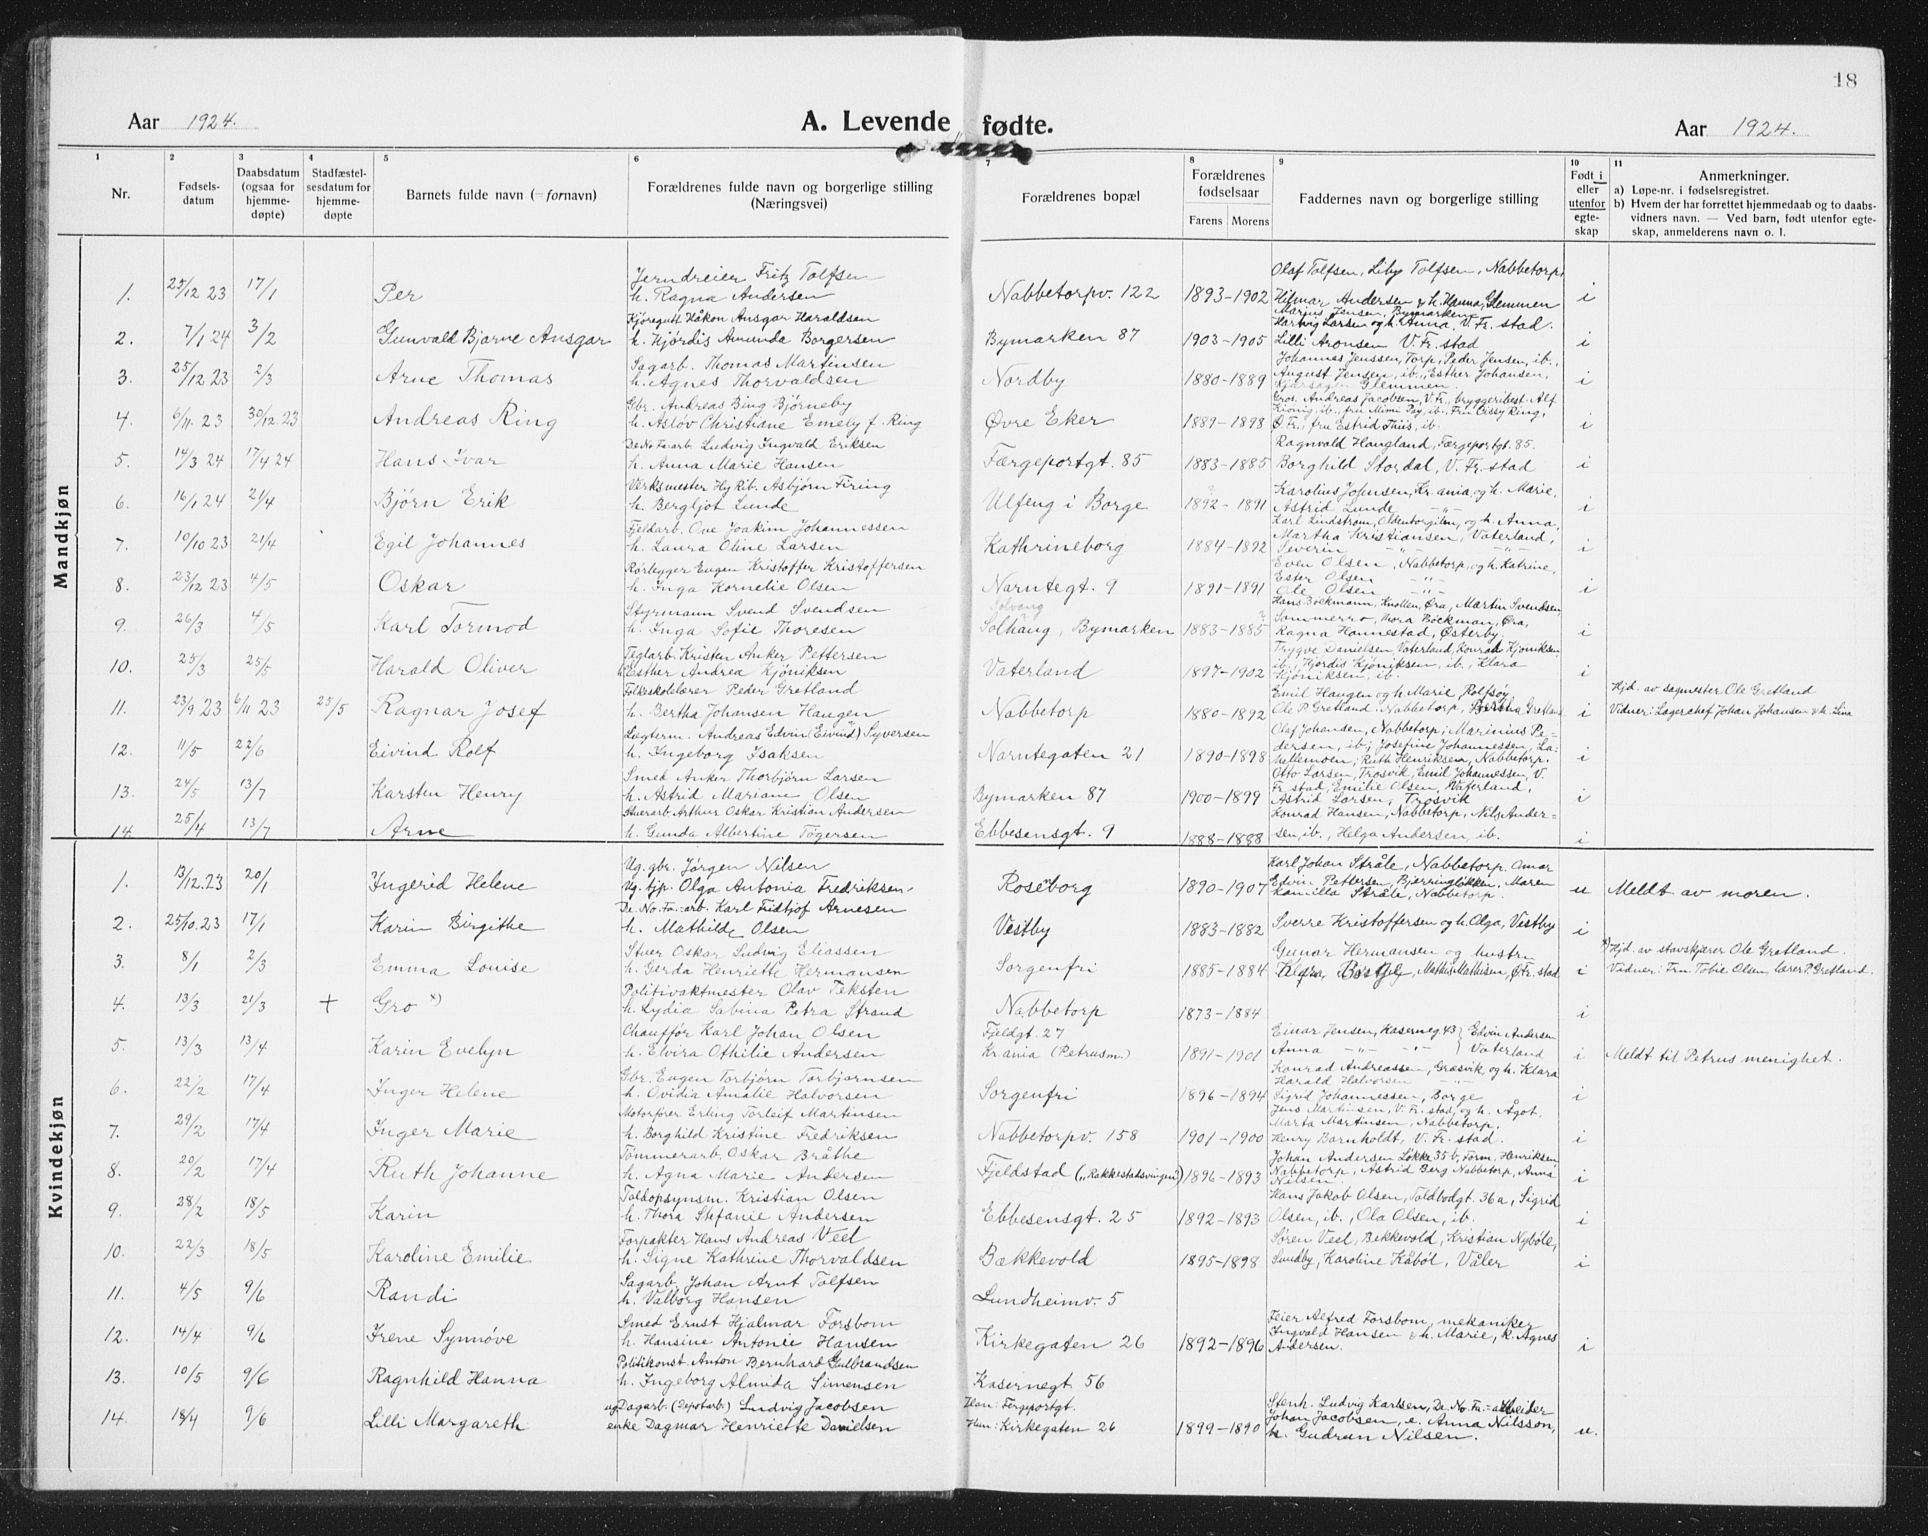 18
Aar 1924.
A. Levende fødte.
Aar 1924.
1 2 3 4 5 6 7 8 9 10 11
Nr.
Fødsels-
datum
Daabsdatum
(ogsaa for
hjemme-
døpte)
Stadfæstel-
sesdatum for
hjemme-
døpte
Barnets fulde navn (= fornavn)
Forældrenes fulde navn og borgerlige stilling
(Næringsvei)
Forældrenes bopæl
Forældrenes
fødselsaar
Farens Morens
Faddernes navn og borgerlige stilling
Født i
eller
utenfor
egte-
skap
Anmerkninger.
a) Løpe-nr. i fødselsregistret.
b) Hvem der har forrettet hjemmedaab og to daabs-
vidners navn. — Ved barn, født utenfor egte-
skap, anmelderens navn o. l.
Mandkjøn
Jerndreier Fritz Tolfsen Olaf Tolfsen, Liby Tolfsen, Nabbetorp,
1. 25/12 23 17/1 Per h. Ragna Andersen Nabbetorpv. 122 1893-1902 Hilmar Andersen & h. Hanna, Glemmen i
Kjøregutt Håkon Ansgar Haraldsen Marius Jensen, Bymarken,
Hartvig Larsen og h. Anna, V. Fr. stad.
2. 7/1 24 3/2 Gunvald Bjarne Ansgar h. Hjørdis Amunda Borgersen Bymarken 87 1903-1905 Lilli Aronsen V. Fr. stad i
Sagarb. Thomas Martinsen Johannes Jenssen, Torp, Peder Jensen, ib.,
3. 25/12 23 2/3 Arne Thomas h. Agnes Thorvaldsen Nordby 1880-1889 August Jensen, ib., Esther Johansen, i
Glemmen.
Gbr. Andreas Bing Bjørneby Gros. Andreas Jacobsen, V. Fr., bryggeribest. Alf
Kiønig ib., fru Mimi Pay, ib., Fru Cissy Ring,
4. 6/11 23 30/12.23 Andreas Ring h. Asløv Christiane Emely f. Ring Øvre Eker 1889-1898 Ø Fr., fru Estrid Thiis, ib. i
De No Fa arb Ludvig Ingvald Eriksen Ragnvald Haugland, Færgeportgt. 85.
5. 14/3 24 17/4 24 Hans Ivar h. Anna Marie Hansen Færgeportgt. 85 1883-1885 Borghild Stordal, V. Fr. stad i
Verksmester Hy Rib. Asbjørn Firing Karolius Johnsen, Kr.ania, og h. Marie,
6. 16/1 24 21/4 Bjørn Erik h. Bergljot Lunde Ulfeng i Borge 1892-1891 Astrid Lunde -"- i
Fjeldarb. Ove Joakim Johannessen Karl Lindstrøm, Oldenborgilen, og h. Anna,
Martha Kristiansen, Vaterland,
7. 10/10 23 21/4 Egil Johannes h. Laura Oline Larsen Kathrineborg 1884-1892 Severin -"- -"- i
Rørlegger Eugen Kristoffer Kristoffersen Even Olsen, Nabbetorp, og h. Katrine,
Ester Olsen -"-
8. 23/12 23 4/5 Oskar h. Inga Kornelie Olsen Narntegt. 9 1891-1891 Ole Olsen -"- i
Styrmann Svend Svendsen Solvang Hans Bøckmann, Knollen, Øra, Martin Svendsen,
Sommerro, Thora Bøckman, Øra,
9. 26/3 4/5 Karl Tormod h. Inga Sofie Thoresen Solhaug, Bymarken 1883-1885 Ragna Hannestad, Østerby. i
Teglarb. Kristen Anker Pettersen Trygve Danielsen Vaterland, Konrad Kjøniksen,
10. 25/3 25/5 Harald Oliver h. Esther Andrea Kjøniksen Vaterland 1897-1902 ib., Hjørdis Kjøniksen, ib., Klara i
Kjøniksen, ib.
Folkeskolelærer Peder Gretland Emil Haugen og h. Marie, Rolfsøy Hjd. av sagmester Ole Gretland
11. 23/9 23 6/11 23 25/5 Ragnar Josef h. Bertha Johansen Haugen Nabbetorp 1880-1892 Ole P. Gretland Nabbetorp, Bertha Gretland i Vidner: Lagerchef Johan Johansen & h. Lina
Lægterm. Andreas Edvin (Eivind) Syversen Olaf Johansen, Nabbetorp, Marinius Pe-
dersen, ib; Josefine Johannessen, La-
12. 11/5 22/6 Eivind Rolf h. Ingeborg Isaksen Narntegaten 21 1890-1898 hellemoen; Ruth Henriksen, Nabbetorp. i
Smed Anker Thorbjørn Larsen Otto Larsen, Trosvik, Emil Johannessen, V.
Fr. stad, Emilie Olsen, Vaterland,
13. 24/5 13/7 Karsten Henry h. Astrid Mariane Olsen Bymarken 87 1900-1899 Astrid Larsen, Trosvik i
Stuerarb. Arthur Oskar Kristian Andersen Konrad Hansen, Nabbetorp, Nils Ander-
14. 25/4 13/7 Arne h. Gunda Albertine Tøgersen Ebbesensgt. 9 1888-1888 sen, ib., Helga Andersen, ib. i
Kvindekjøn
Ug. gbr. Jørgen Nilsen Karl Johan Stråle, Nabbetorp. Omar
1. 13/12.23 20/1 Ingerid Helene Ug. tjp. Olga Antonia Fredriksen Roseborg 1890-1907 Edvin Pettersen, Bjerringløkken, Maren u Meldt av moren.
Kamilla Stråle, Nabbetorp.
De. No. Fa.-arb. Karl Fridtjof Arnesen
2. 25/10.23 17/1 Karin Birgithe h. Mathilde Olsen Vestby 1883-1882 Sverre Kristoffersen og h. Olga, Vestby i
Stuer Oskar Ludvig Eliassen Gunnar Hermansen og hustru x) Hjd. av stavskjærer Ole Gretland.
3. 8/1 2/3 Emma Louise h. Gerda Henriette Hermansen Sorgenfri 1885-1884 Klara, Borge, Mathis Mathisen, Ø Fr. stad i Vidner: Fru Tobie Olsen, lærer P. Gretland.
Politivaktmester Olav Teksten
4. 13/3 21/3 + Gro x) h. Lydia Sabina Petra Strand Nabbetorp 1873-1884 i
Chauffør Karl Johan Olsen Fjeldgt. 27 Einar Jensen, Kaserneg 43 } Edvin Andersen
5. 13/3 13/4 Karin Evelyn h. Elvira Othilie Andersen Kr.ania (Petrusm.) 1891-1901 Anna -"- -"- } Vaterland i Meldt til Petrus menighet.
Gbr. Eugen Torbjørn Torbjørnsen Konrad Andreassen, Græsvik, og h. Klara
Harald Halvorsen -"-
6. 22/2 17/4 Inger Helene h. Ovidia Amalie Halvorsen Sorgenfri 1896-1894 Sigrid Johannessen, Borge i
Motorfører Erling Torleif Martinsen Jens Martinsen, V. Fr. stad, og h. Ågot.
Marta Martinsen, Nabbetorp,
7. 29/2 17/4 Inger Marie h. Borghild Kristine Fredriksen Nabbetorpv. 158 1901-1900 Henry Barnholdt, V. Fr. stad. i
Tømmerarb. Oskar Bråthe Johan Andersen Løkke 35 b, Form. Henriksen
8. 20/2 17/4 Ruth Johanne h. Agna Marie Andersen Fjeldstad („Rakkestadsvingen") 1896-1893 Nabbetorp, Astrid Berg Nabbetorp, Anna i
Nilsen.
Toldopsynsm. Kristian Olsen Hans Jakob Olsen, Toldbodgt. 36a, Sigrid
9. 28/2 18/5 Karin h. Thora Stefanie Andersen Ebbesensgt. 25 1892-1893 Olsen, ib., Ola Olsen, ib. i
Forpakter Hans Andreas Veel Søren Vest, Bekkevold, Kristian Nybøle,
10. 22/3 18/5 Karoline Emilie h. Signe Kathrine Thorvaldsen Bækkevold 1895-1898 Sundby, Karoline Kåbøl, Våler i
Sagarb. Johan Arnt Tolfsen
11. 4/5 9/6 Randi h. Valborg Hansen Lundheimv. 5
Smed Ernst Hjalmar Forsbom Feier Alfred Forsbom, mekaniker
12. 14/4 9/6 Irene Synnøve h. Hansine Antonie Hansen Kirkegaten 26 1892-1896 Ingvald Hansen & h. Marie, k. Agnes i
Andersen.
Politikonst. Anton Bernhard Gulbrandsen
13. 10/5 9/6 Ragnhild Hanna h. Ingeborg Almida Simensen Kasernegt 56
ug Dagarb. (Depotarb.) Ludvig Jacobsen Han: Fergeportgt. Stenh. Ludvig Karlsen, De. No. Fa.-arbeider
Johan Jacobsen, e. Anna Nilsson,
14. 18/4 9/6 Lilli Margareth enke Dagmar Henriette Danielsen Hun: Kirkegaten 26 1899-1890 h. Gudrun Nilsen. u.